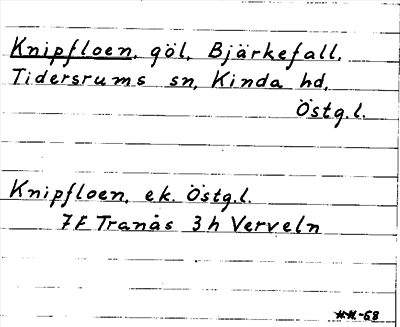 Knipfloen, göl, Bjärkefall,
Tidersrums sn, Kinda hd,
Östg.l.
Knipfloen, ek. Östg.l.
7F Tranås 3h Verveln